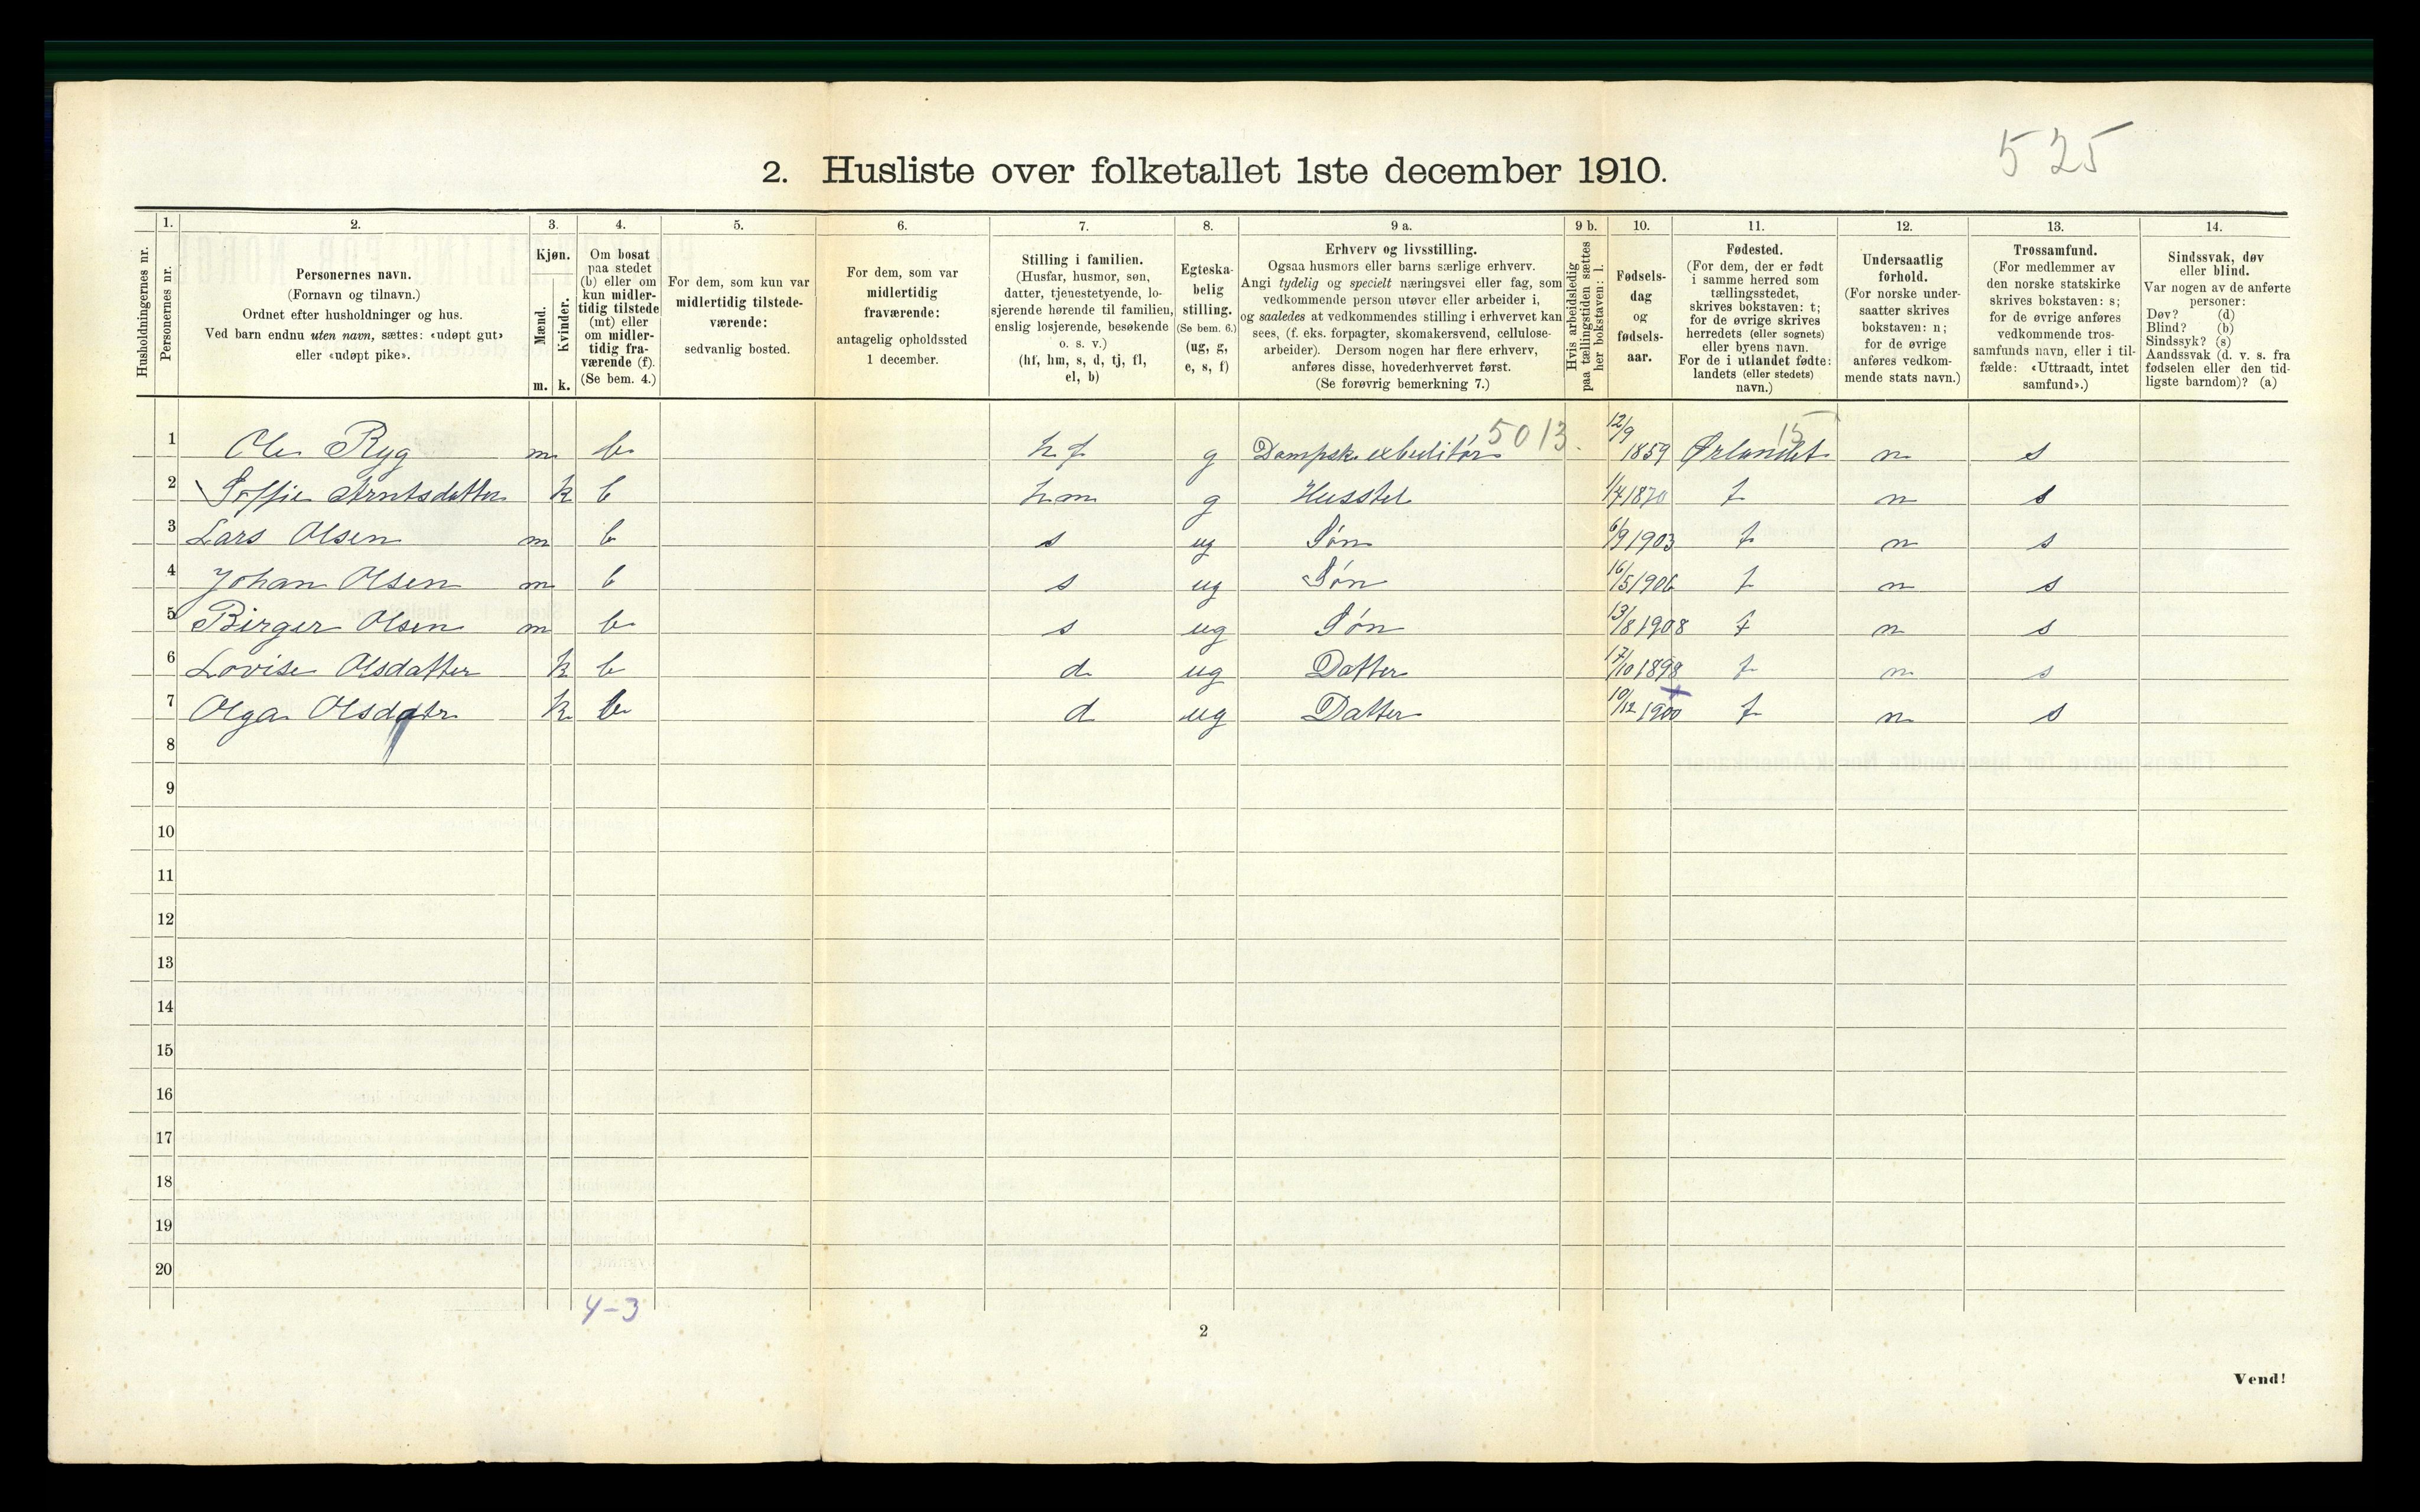 525
2. Husliste over folketallet 1ste december 1910.
Husholdningernes nr.
1.
Personernes nr.
2.
Personernes navn.
(Fornavn og tilnavn.)
Ordnet efter husholdninger og hus.
Ved barn endnu uten navn, sættes: «udøpt gut»
eller «udøpt pike».
3.
Kjøn.
Mænd.
Kvinder.
m. k.
4.
Om bosat
paa stedet
(b) eller om
kun midler-
tidig tilstede
(mt) eller
om midler-
tidig fra-
værende (f).
(Se bem. 4.)
5.
For dem, som kun var
midlertidig tilstede-
værende:
sedvanlig bosted.
6.
For dem, som var
midlertidig
fraværende:
antagelig opholdssted
1 december.
7.
Stilling i familien.
(Husfar, husmor, søn,
datter, tjenestetyende, lo-
sjerende hørende til familien,
enslig losjerende, besøkende
o. s. v.)
(hf, hm, s, d, tj, fl,
el, b)
8.
Egteska-
belig
stilling.
(Se bem. 6.)
(ug, g,
e, s, f)
9 a.
Erhverv og livsstilling.
Ogsaa husmors eller barns særlige erhverv.
Angi tydelig og specielt næringsvei eller fag, som
vedkommende person utøver eller arbeider i,
og saaledes at vedkommendes stilling i erhvervet kan
sees, (f. eks. forpagter, skomakersvend, cellulose-
arbeider). Dersom nogen har flere erhverv,
anføres disse, hovederhvervet først.
(Se forøvrig bemerkning 7.)
9 b.
Hvis arbeidsledig
paa tællingstiden sættes
her bokstaven: l.
10.
Fødsels-
dag
og
fødsels-
aar.
11.
Fødested.
(For dem, der er født
i samme herred som
tællingsstedet,
skrives bokstaven: t;
for de øvrige skrives
herredets (eller sognets)
eller byens navn.
For de i utlandet fødte:
landets (eller stedets)
navn.)
12.
Undersaatlig
forhold.
(For norske under-
saatter skrives
bokstaven: n;
for de øvrige
anføres vedkom-
mende stats navn.)
13.
Trossamfund.
(For medlemmer av
den norske statskirke
skrives bokstaven: s;
for de øvrige anføres
vedkommende tros-
samfunds navn, eller i til-
fælde: «Uttraadt, intet
samfund».)
14.
Sindssvak, døv
eller blind.
Var nogen av de anførte
personer:
Døv? (d)
Blind? (b)
Sindssyk? (s)
Aandssvak (d. v. s. fra
fødselen eller den tid-
ligste barndom)? (a)
5013. 15
1 Ole Ryg m b hf g Dampsk. exbeditør 12/9 1859 Ørlandet n s
2 Soffie Arntsdatter k b hm g Husstel 1/4 1870 t n s
3 Lars Olsen m b s ug Søn 6/9 1903 t n s
4 Johan Olsen m b s ug Søn 16/5 1906 t n s
5 Birger Olsen m b s ug Søn 13/8 1908 t n s
6 Lovise Olsdatter k b d ug Datter 17/10 1898 t n s
7 Olga Olsdatr k b d ug Datter 10/12 1900 t n s
8
9
10
11
12
13
14
15
16
17
18
19
20
4-3
2
Vend!